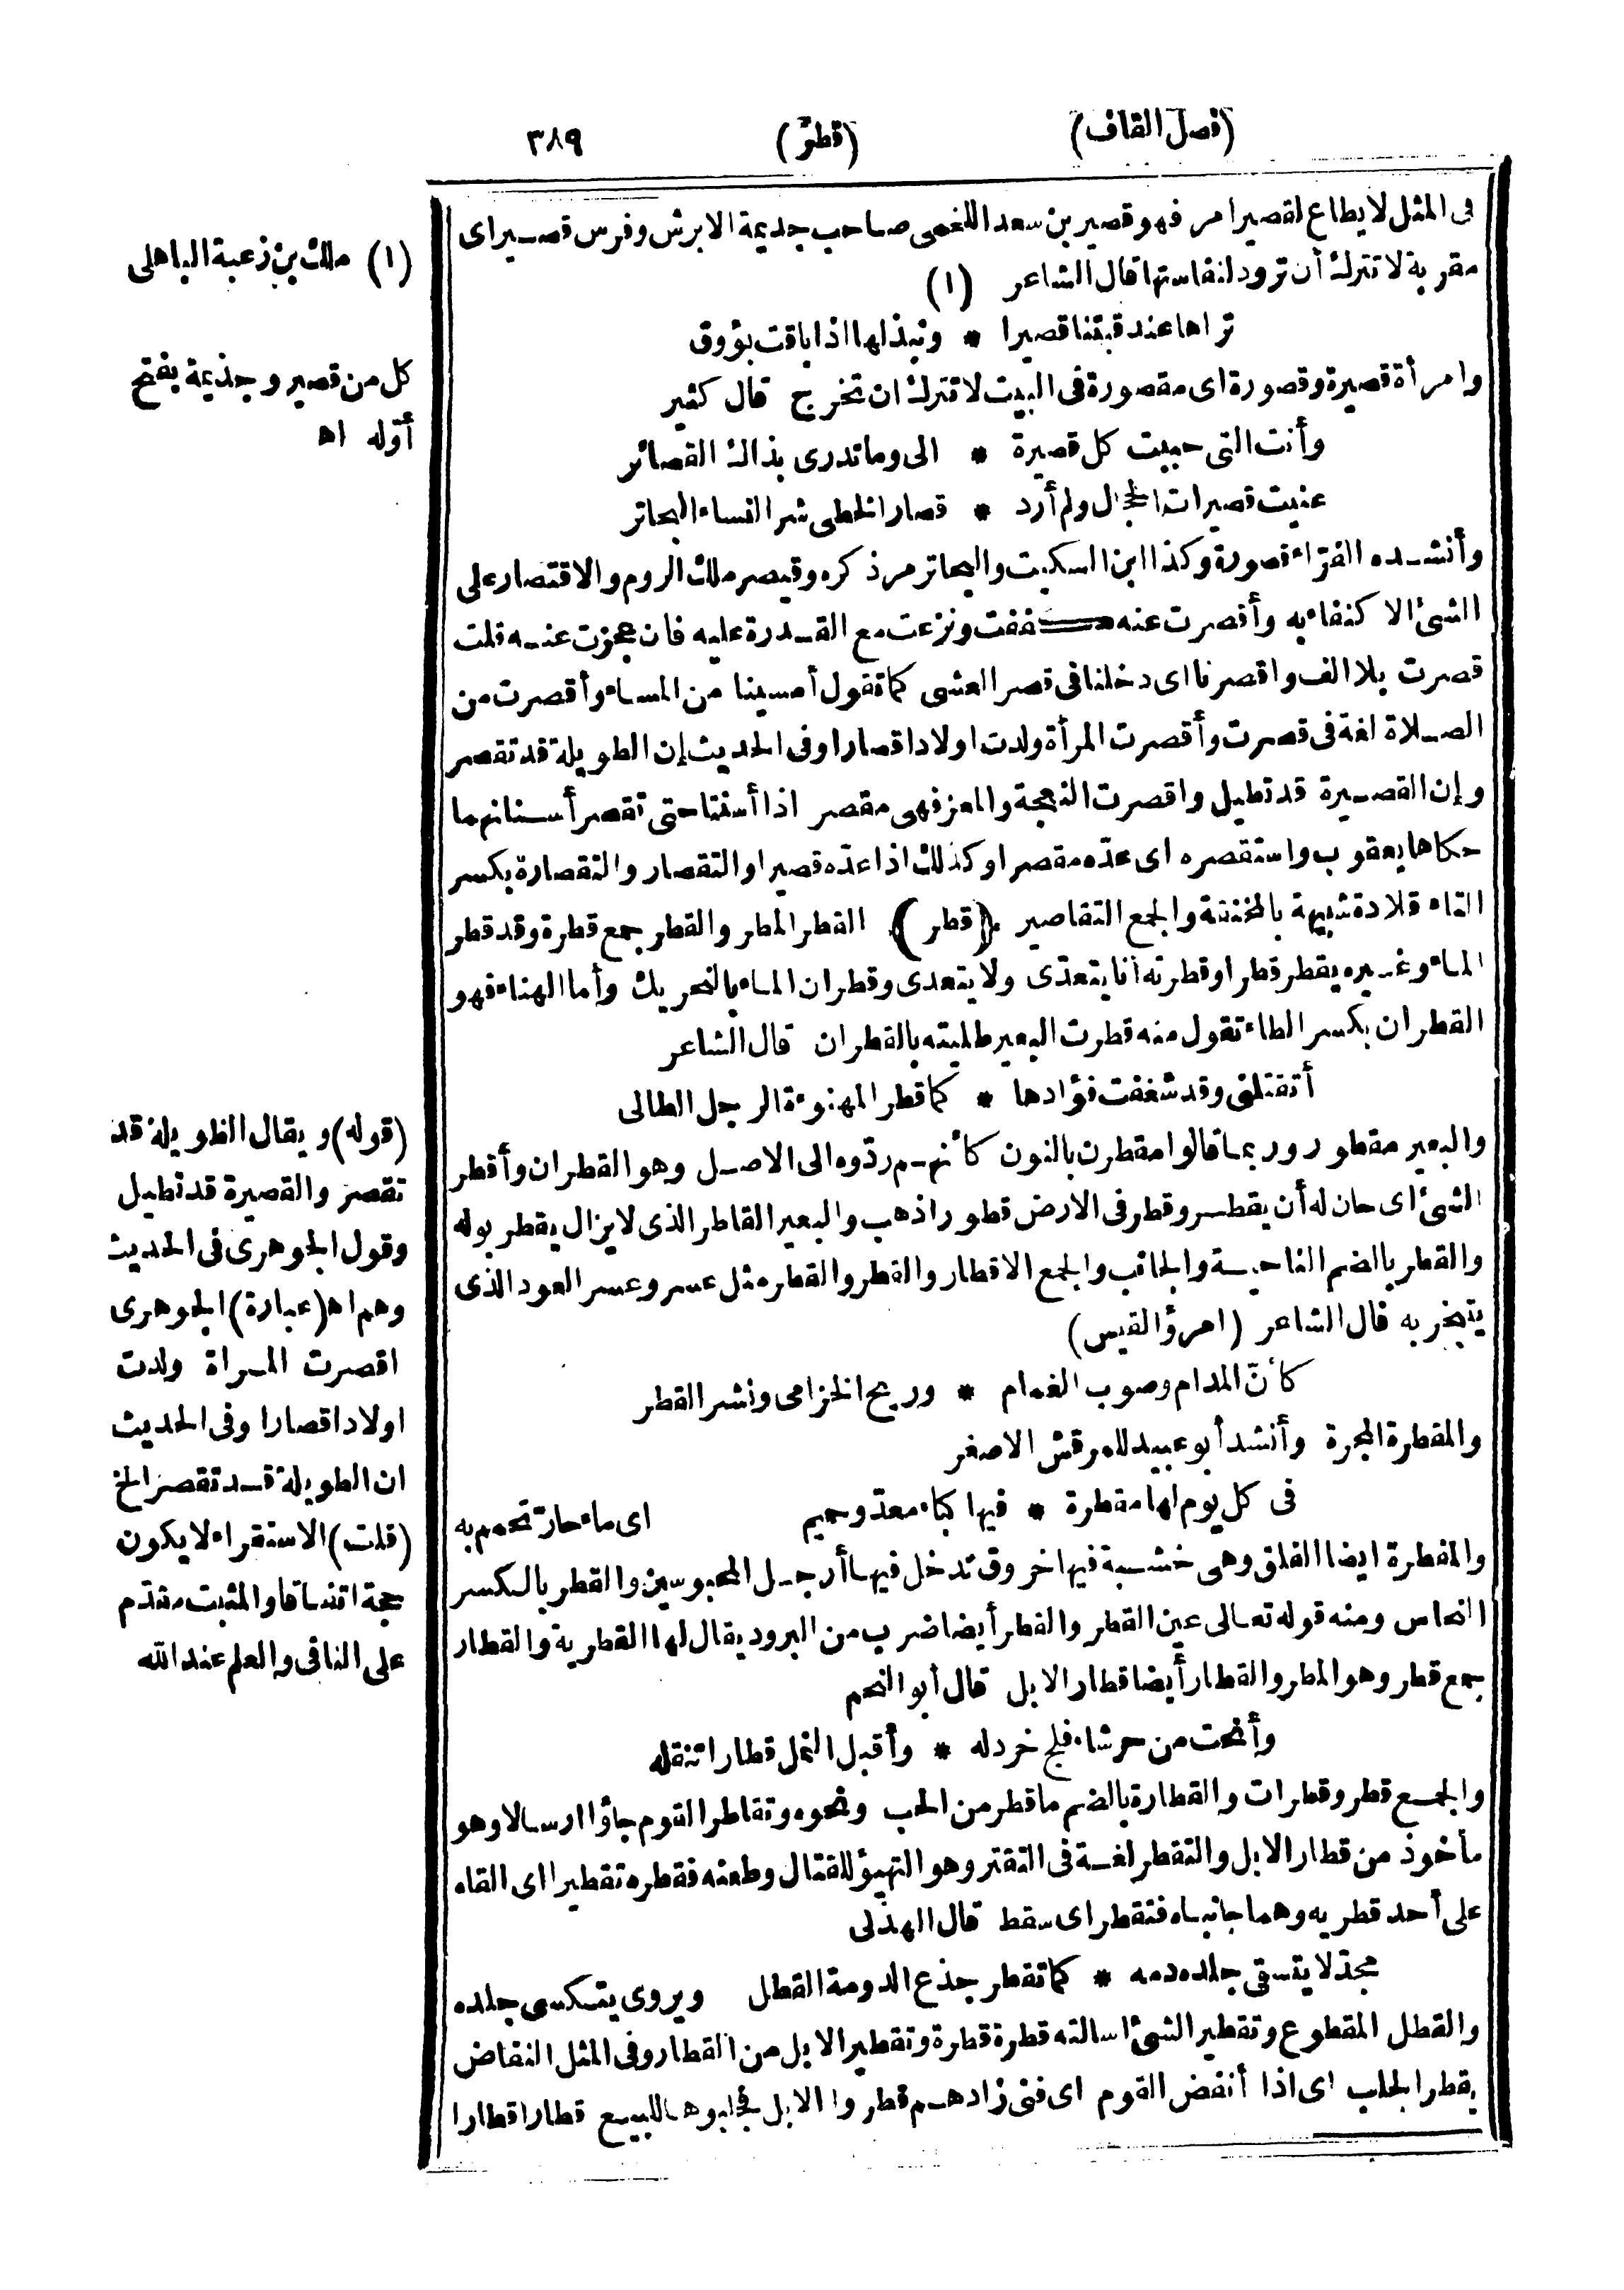 (فصل القاف)
(قطر)
٣٨٩
فى المثل لايطاع لقصير امر فهو قصير بن سعد اللخمى صاحب جذيمة الابرش وفرس قصير اى
مقربة لا تترك أن ترود لنفاستها قال الشاعر (١)
تراها عند قبتنا قصيرا * ونبذلها اذا باقت بؤوق
وامرأة قصيرة وقصورة اى مقصورة فى البيت لا تترك ان تخرج قال كثير
وأنت التى حببت كل قصيرة * الى وما تدرى بذاك القصائر
عنيت قصيرات الحجال ولم أرد * قصار الخطى شر النساء البحاتر
وأنشده الفرّاء قصورة وكذا ابن السكيت والبحاتر مر ذكره وقيصر ملك الروم والاقتصار على
الشئ الاكتفاء به وأقصرت عنه كففت ونزعت مع القدرة عليه فان عجزت عنه قلت
قصرت بلا الف واقصرنا اى دخلنا فى قصر العشى كما تقول أمسينا من المساء وأقصرت من
الصلاة لغة فى قصرت وأقصرت المرأة ولدت اولادا قصارا وفى الحديث إن الطويلة قد تقصر
وإن القصيرة قد تطيل واقصرت النعجة والمعز فهى مقصر اذا أسنتا حتى تقصر أسنانهما
حكاها يعقوب واستقصره اى عدّه مقصرا وكذلك اذا عدّه قصيرا والتقصار والتقصارة بكسر
التاء قلادة شبيهة بالمخنقة والجمع التقاصير (قطر) القطر المطر والقطر جمع قطرة وقد قطر
الماء وغيره يقطر قطرا وقطرته أنا يتعدّى ولا يتعدى وقطران الماء بالتحريك وأما الهناء فهو
القطران بكسر الطاء تقول منه قطرت البعير طليته بالقطران قال الشاعر
أتقتلنى وقد شغفت فؤادها * كما قطر المهنوءة الرجل الطالى
والبعير مقطور وربما قالوا مقطرن بالنون كأنهم ردّوه الى الاصل وهو القطران وأقطر
الشئ اى حان له أن يقطر وقطر فى الارض قطورا ذهب والبعير القاطر الذى لايزال يقطر بوله
والقطر بالضم الناحية والجانب والجمع الاقطار والقطر والقطر مثل عسر وعسر العود الذى
يتبخر به قال الشاعر (امرؤ القيس)
كأنّ المدام وصوب الغمام * وريح الخزامى ونشر القطر
والمقطرة المجمرة وأنشد أبو عبيد للمرقش الاصغر
فى كل يوم لها مقطرة * فيها كباء معدّ وحميم اى ماء حار تحمم به
والمقطرة ايضا الفلق وهى خشبة فيها خروق تدخل فيها أرجل المحبوسين والقطر بالكسر
النحاس ومنه قوله تعالى عين القطر والقطر أيضا ضرب من البرود يقال لها القطرية والقطار
جمع قطر وهو المطر والقطار أيضا قطار الابل قال أبو النجم
وأنحت من حرشاء فلج خردله * وأقبل النمل قطارا تنقله
والجمع قطر وقطرات والقطارة بالضم ما قطر من الحب ونحوه وتقاطر القوم جاؤا ارسالا وهو
مأخوذ من قطار الابل والتقطر لغة فى التقتر وهو التهيؤ للقتال وطعنه فقطره تقطيرا اى القاه
على أحد قطريه وهما جانباه فتقطر اى سقط قال الهذلى
مجدّلا يتسقى جلده دمه * كما تقطر جذع الدومة القطل ويروى يتكسى جلده
والقطل المقطوع وتقطير الشئ اسالته قطرة قطرة وتقطير الابل من القطار وفى المثل النفاض
يقطر الجلب اى اذا أنفض القوم اى فنى زادهم قطروا الابل فجلبوها للبيع قطارا قطارا
(١) ملك بن زغبة الباهلى
كل من قصير وجذيمة بفتح
أوّله اه
(قوله) ويقال الطويلة قد
تقصر والقصيرة قد تطيل
وقول الجوهرى فى الحديث
وهم اه (عبارة) الجوهرى
اقصرت المراة ولدت
اولادا قصارا وفى الحديث
ان الطويلة قد تقصر الخ
(قلت) الاستقراء لا يكون
حجة اتفاقا والمثبت مقدّم
على النافى والعلم عند الله